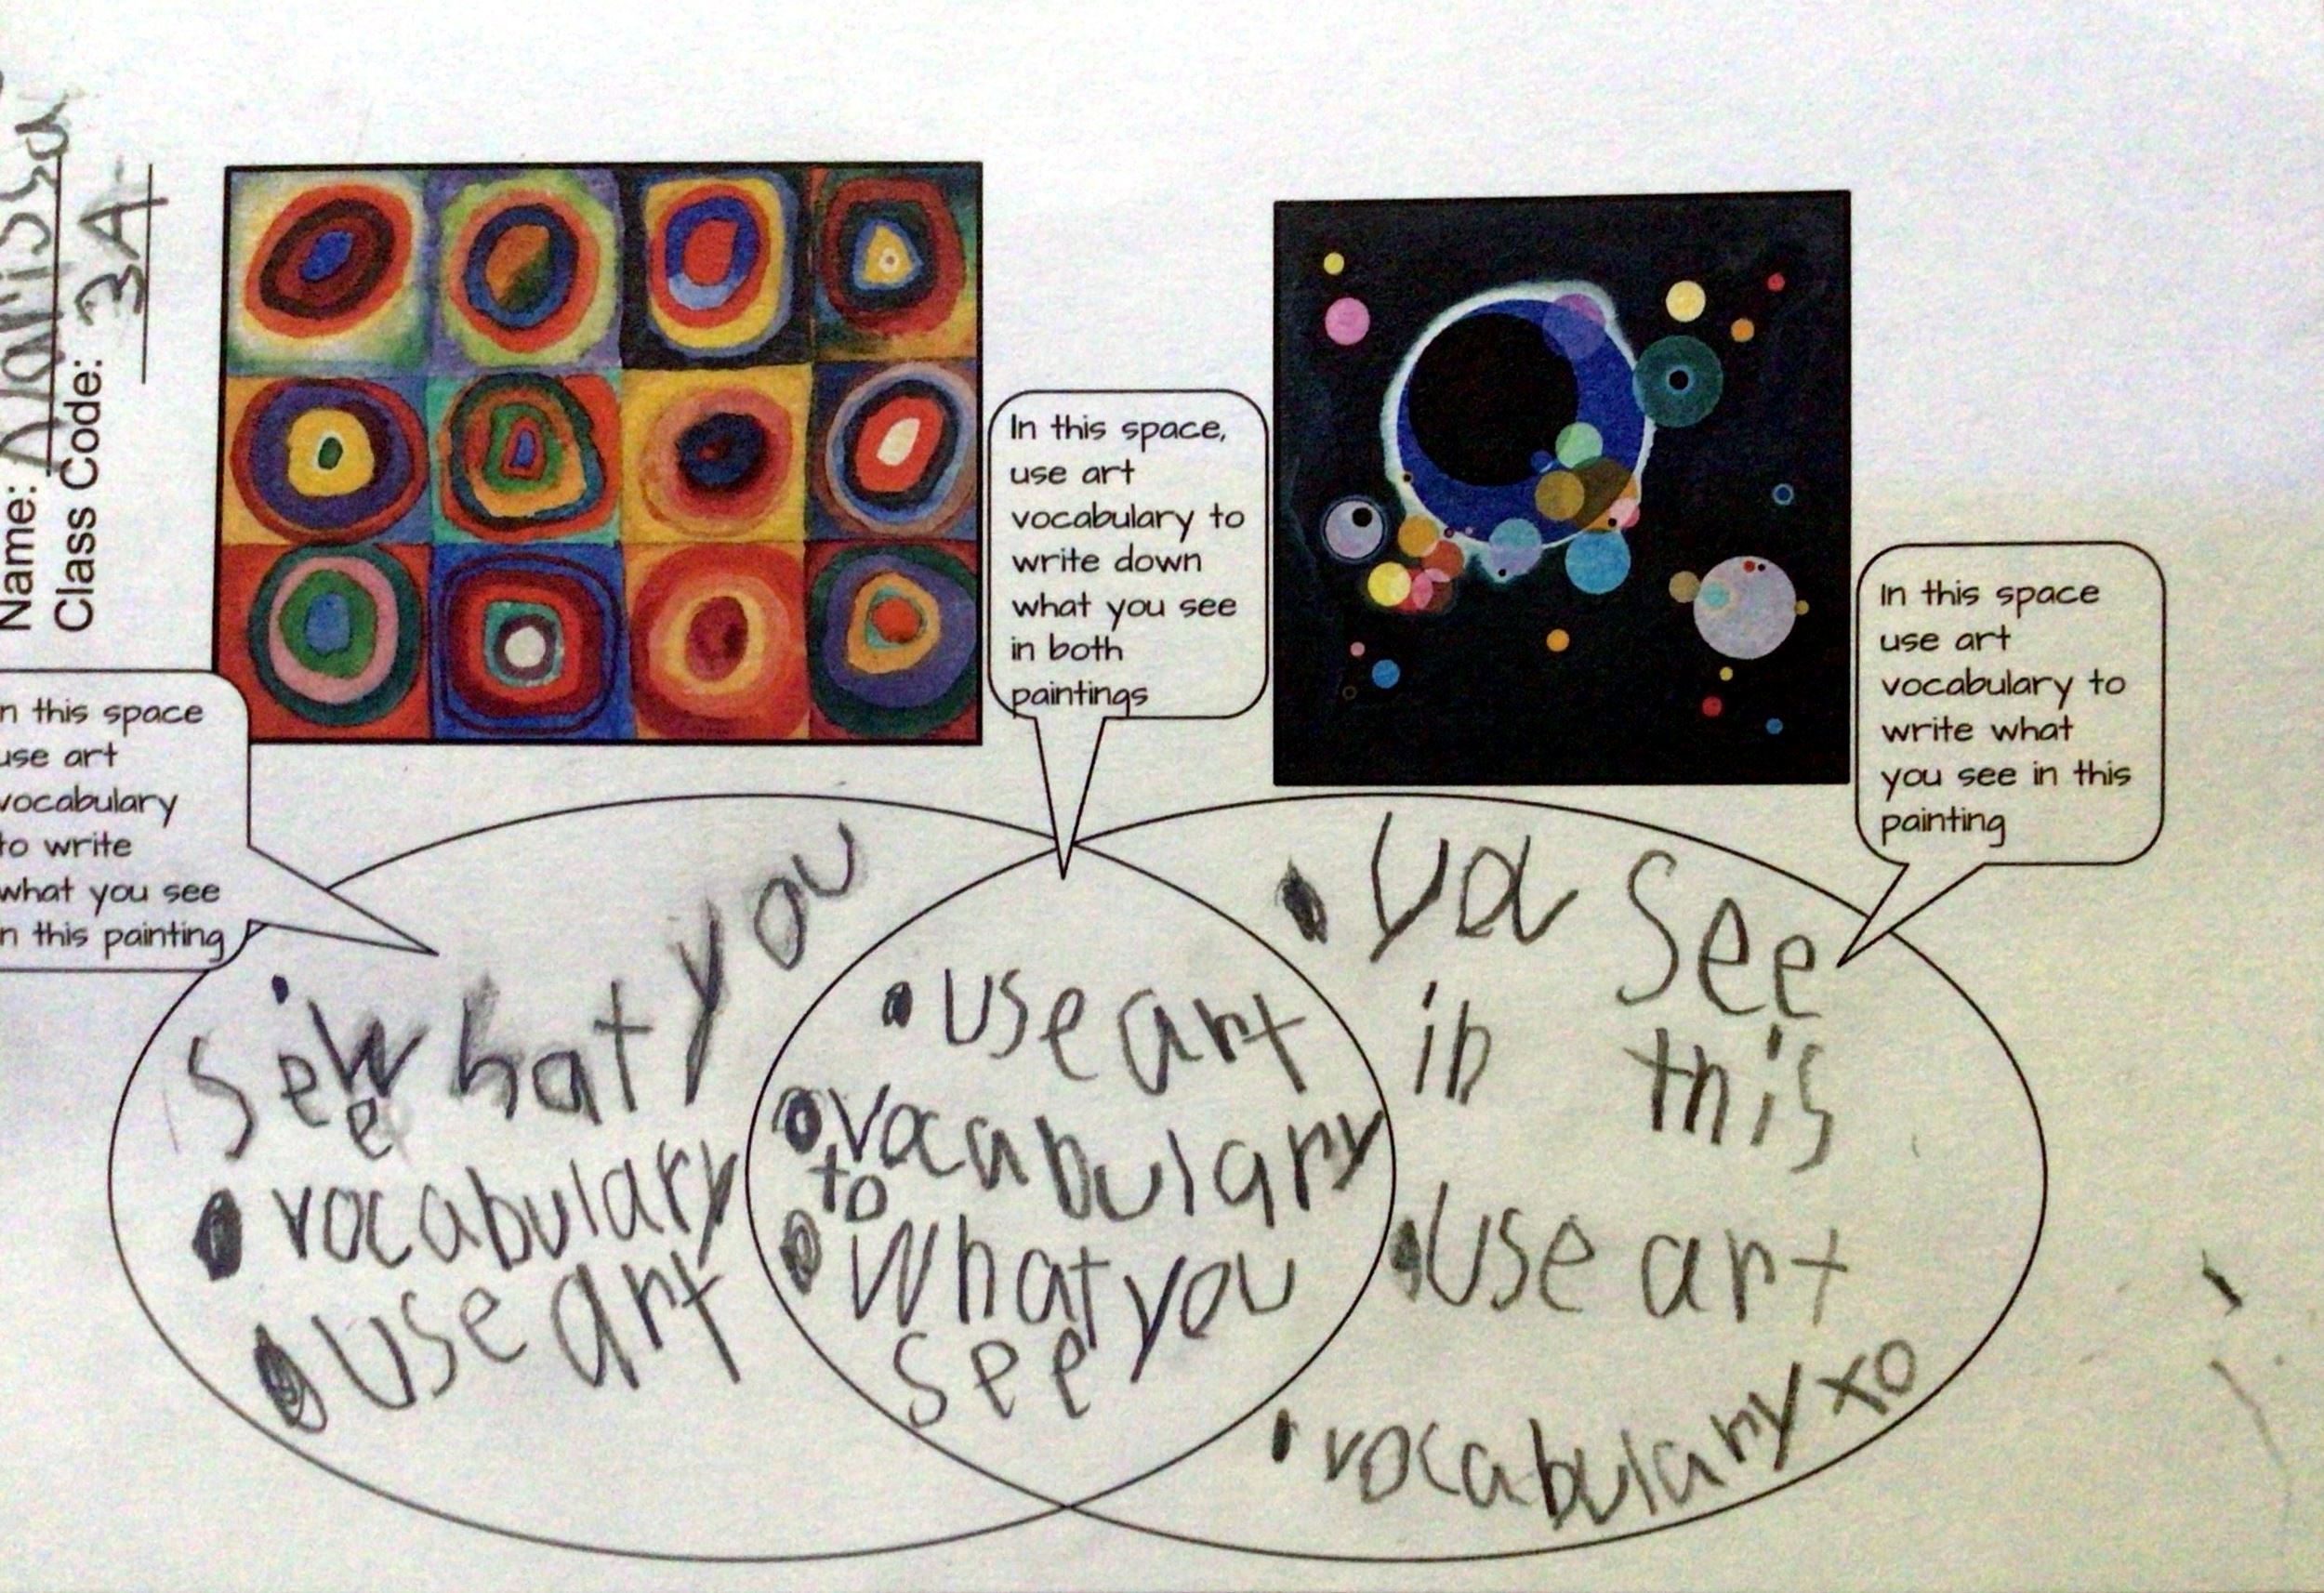 Name: Narissa
Class Code: 3A
In this space,
use art
vocabulary to
write down
what you see
in both
paintings
In this space
use art
vocabulary to
write what
you see in this
painting
n this space
use art
vocabulary
to write
what you see
n this painting
• what you
see
• vocabulary
• use art
• use art
• vocabulary
to
• what you
see
• you see
in this
• use art
• vocabulary to